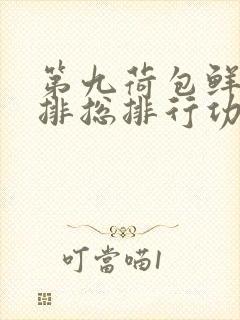 第九荷包鲜
排总排行功
叮當喵1